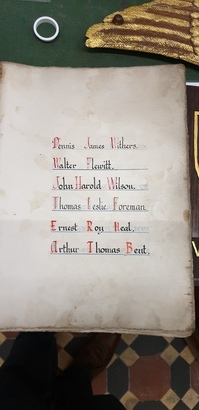 Dennis James Withers.
Walter Flewitt.
John Harold Wilson.
Thomas Leslie Foreman.
Ernest Roy Neal.
Arthur Thomas Bent.